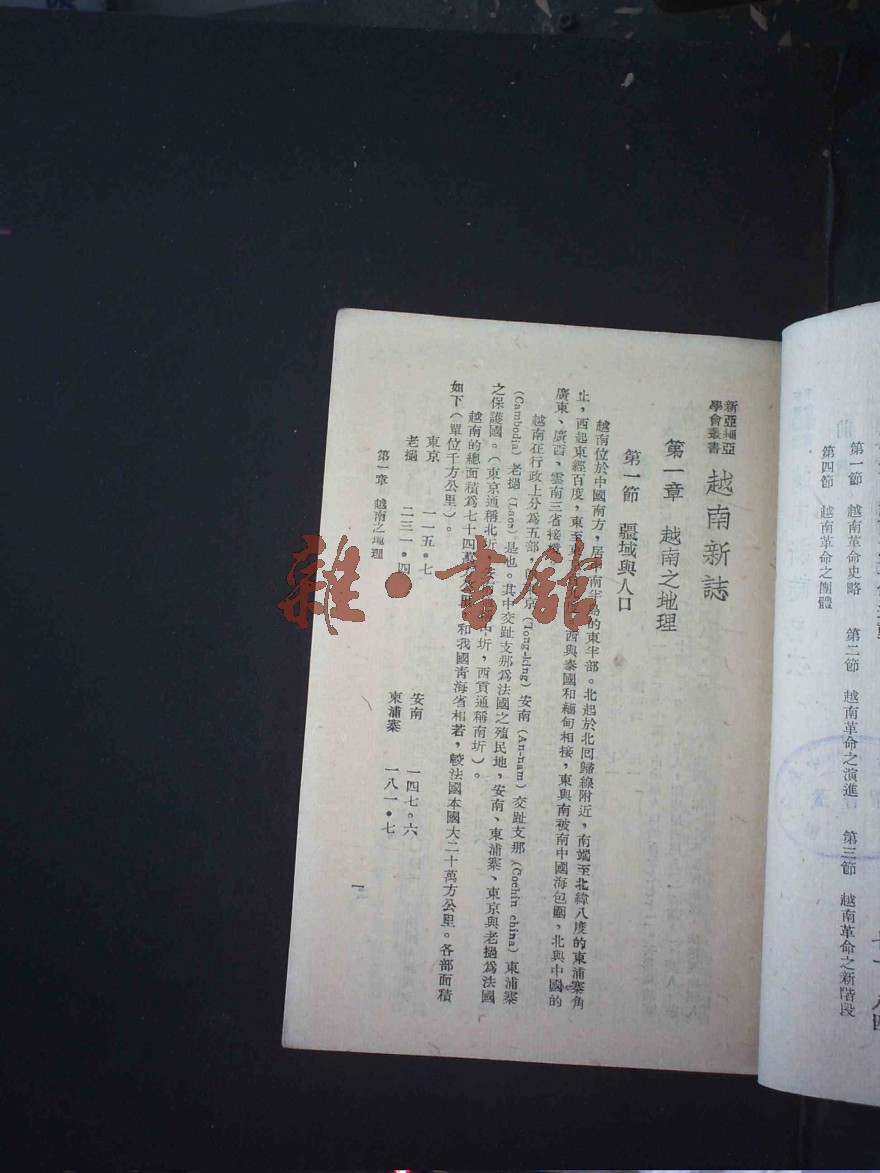 第一節　越南革命史略　第二節　越南革命之演進　第三節　越南革命之新階段
第四節　越南革命之團體
新亞細亞
學會叢書
越南新誌
第一章　越南之地理
第一節　疆域與人口
越南位於中國南方，居中南半島的東半部。北起於北回歸線附近，南端至北緯八度的東浦寨角
止，西起東經百度，東至東
西與泰國和緬甸相接，東與南被南中國海包圍，北與中國的
廣東、廣西、雲南三省接
越南在行政上分爲五部，
東京（Tong-king）安南（An-nam）交趾支那（Cochin china）東浦寨
（Cambodia）老撾（Laos）是也。其中交趾支那爲法國之殖民地，安南、東浦寨、東京與老撾爲法國
之保護國。（東京通稱北圻，
中圻，西貢通稱南圻）。
越南的總面積爲七十四萬
和我國青海省相若，較法國本國大二十萬方公里。各部面積
如下（單位千方公里）。
東京　一一五・七　安南　一四七。六
老撾　二三一・四　東浦寨　一八一・七
第一章　越南之地理
一
雜・書館